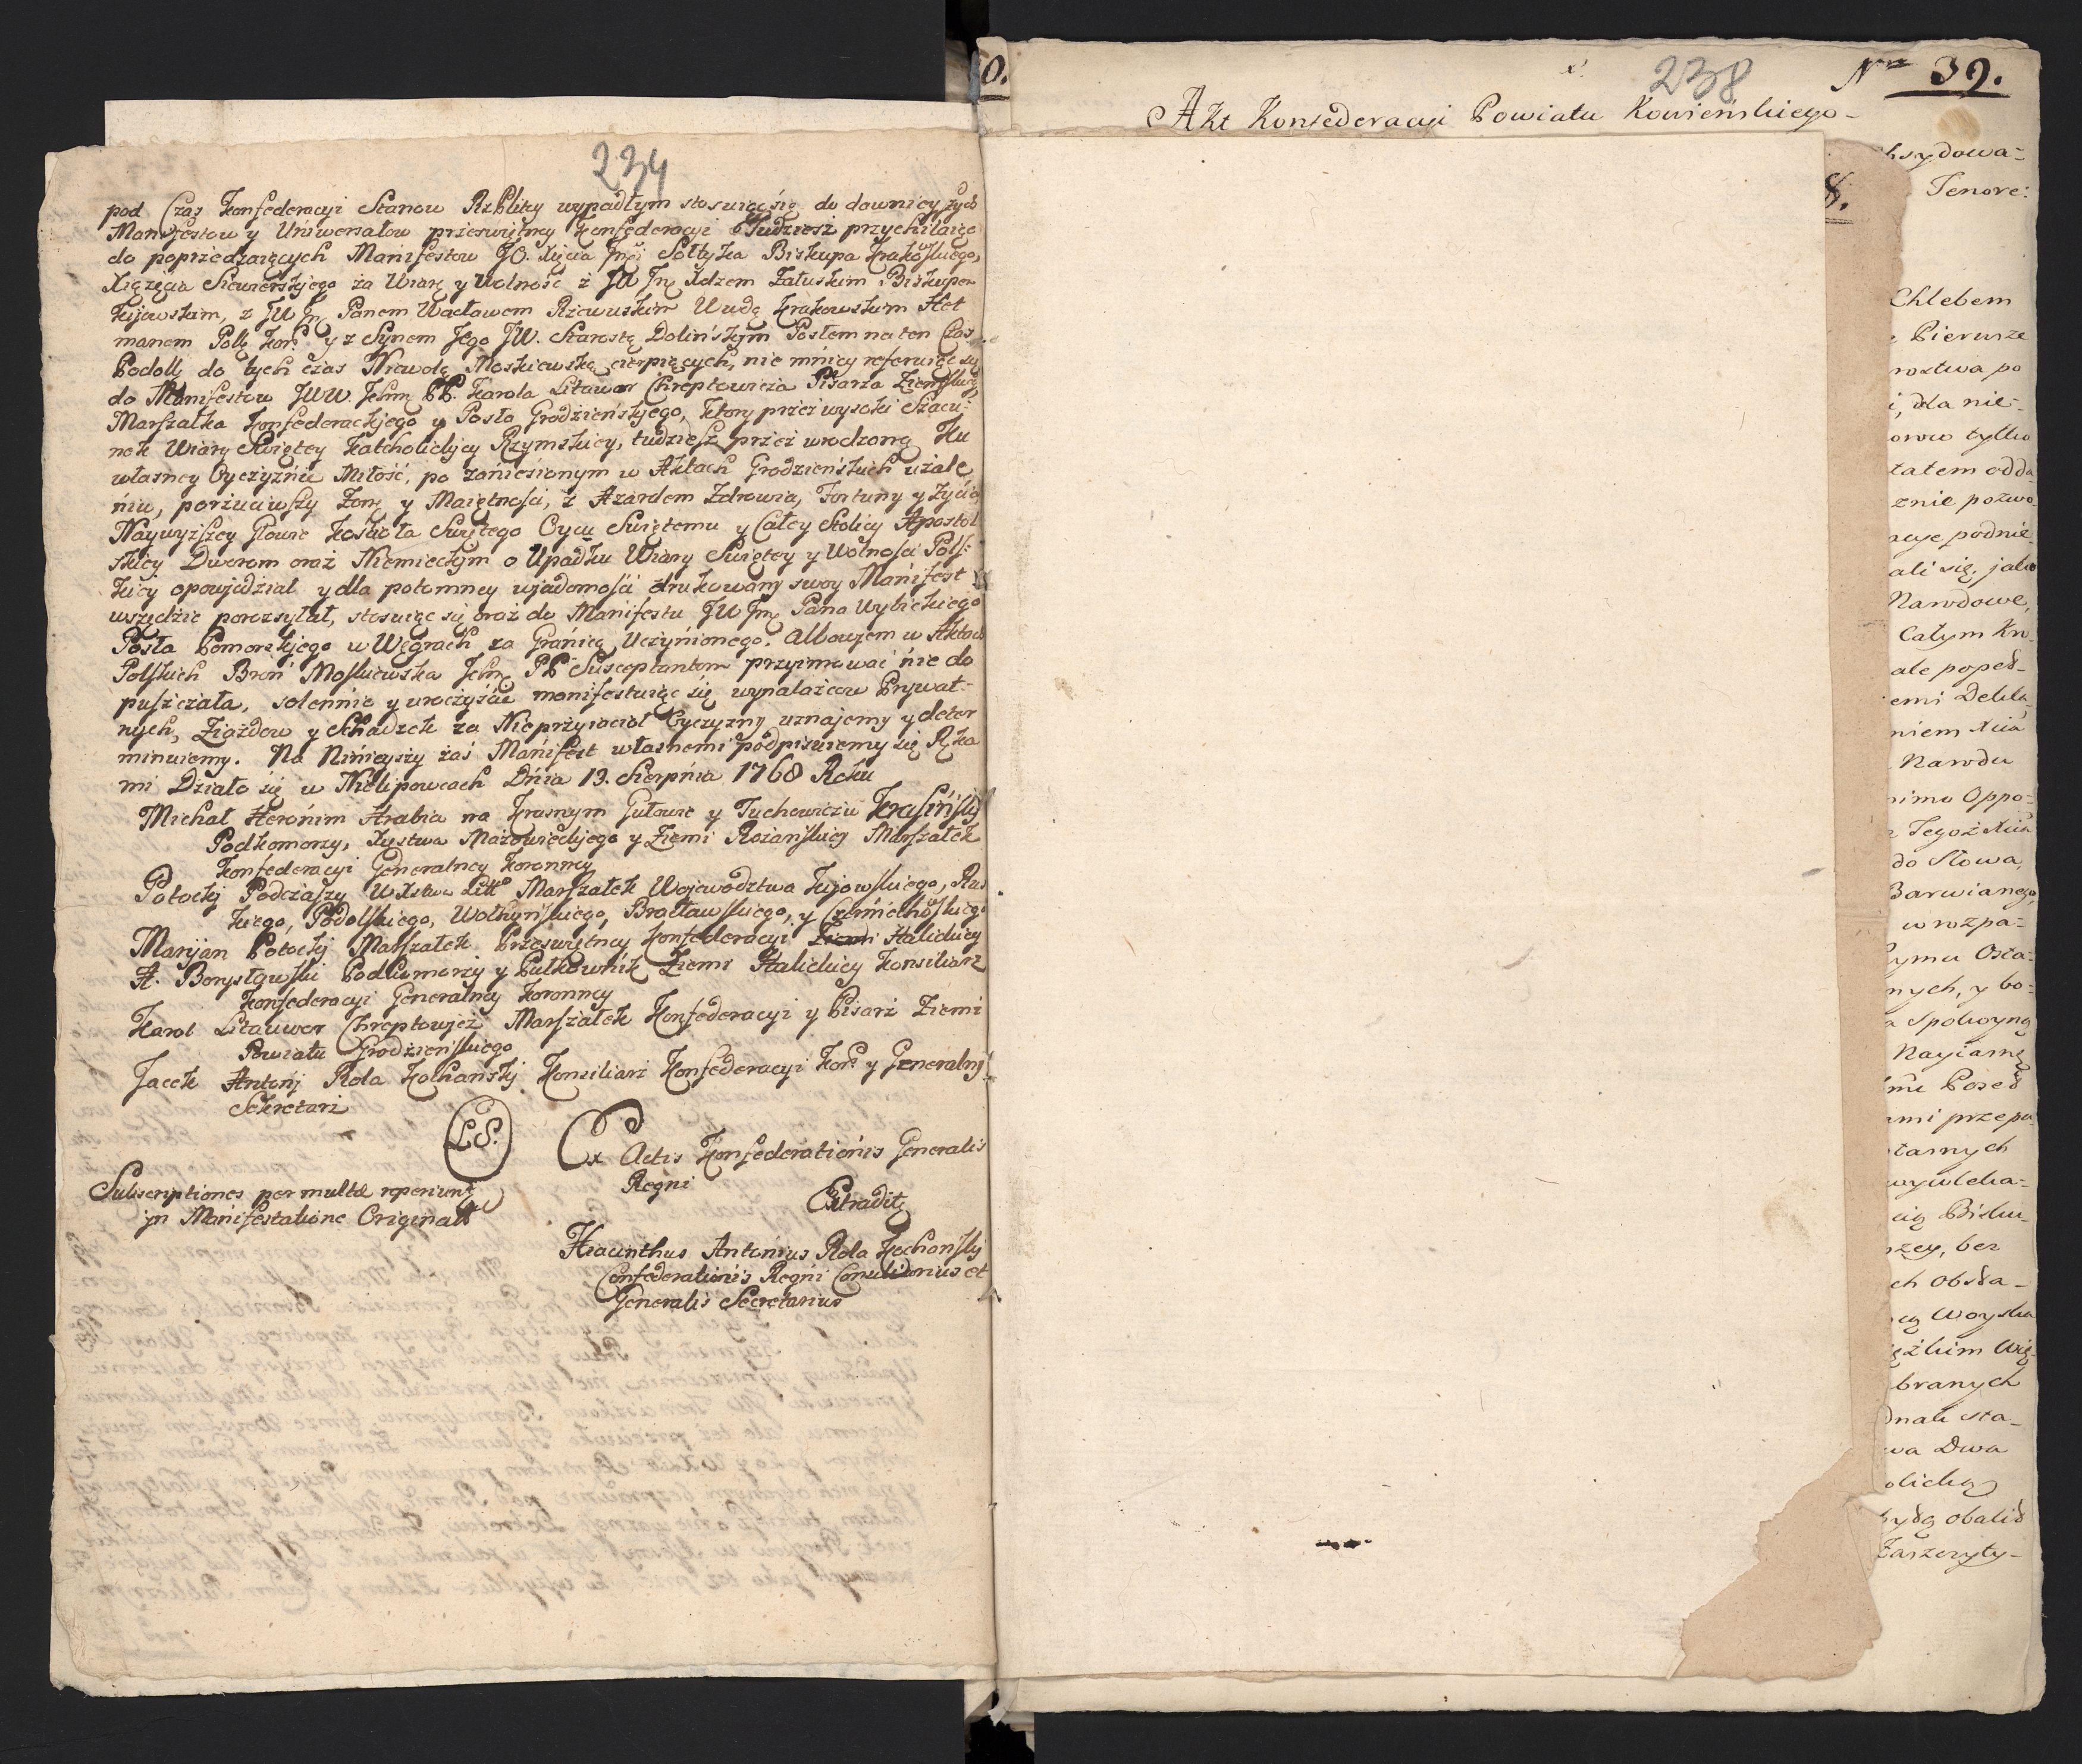 234
pod Czas Konfederacyi Stanow Rzblitey wypadłym stosuiąc się do dawnieyszych
Manifestow y Uniwersałow prześwietney Konfederacyi Tudziesz przychilaiąc
do poprzedzaiących Manifestow JO. Xięcia Sołtyka Biskupa Krakowskiego,
Xiążęcia Siewierskjego za Wiarę y Wolność z JW Xdzem Załuskim Biskupem
Kijowskim, z JW Panem Wacławem Rzewuskim Wwdą Krakowskim Het
manem Pol. Kor. y z Synem Jego JW. Starostą Dolińskjm Posłem na ten Czas
Podoll. do tych czas Niewolę Moskiewską cierpiących, nie mniey referuiąc się
do Manifestow JWW. PP. Karola Litawor Chreptowicza Pisarza Ziemskiego
Marszałka Konfederackjego y Posła Grodzieńskjego, ktory przez wysoki Szacu:
nek Wiary Swiętey Katcholickjey Rzymskiey, tudziesz przez wrodzoną Ku
własney Oyczyznie Miłość, po zaniesionym w Aktach Grodzieńskich użale
niu, porzuciwszy Zonę y Maiętności, z Azardem Zdrowia, Fortuny y Zycia
Naywyższey Głowie Kościoła Swiętego Oycu Swiętemu y Całey Stolicy Apostol
skiey Dworom oraz Niemieckjm o Upadku Wiary Swiętey y Wolności Pols:
kiey opowjedział y dla potomney wjadomości drukowany swoy Manifest
wszędzie porozsyłał, stosuiąc się oraz do Manifestu JW Pana Wybickiego
Posła Pomorskjego w Węgrach za Granicą Uczynionego. Albowjem w Aktach
Polskich Broń Moskiewska PP Susceptantom przyimować nie do
puszczała, solennie y uroczyście manifestuiąc się wynalazcow Prywat-
nych, Ziazdow y Schadzek za Nieprzyiacioł Oyczyzny uznajemy y deter
minuiemy. Na Ninieyszy zaś Manifest własnemi podpisuiemy się Ręka
mi Działo się w Nielipowcach Dnia 13. Sierpnia 1768 Roku
Michał Heronim Hrabia na Krasnym Gutowie y Tuchowiczu Krasińskj
Podkomorzy, Xięstwa Mazowieckjego y Ziemi Rożańskiey Marszałek
Konfederacyi Generalney Koronney
Potockj Podczaszy WXstwa Litt. Marszałek Wojewodztwa Kijowskiego, Rus
kiego, Podolskiego, Wołhyńskiego, Bracławskiego, y Czerniechowskiego
Maryjan Potockj Marszałek Prześwietney Konfederacyi Ziemi Halickiey
A. Borysławski Podkomorzy y Pułkownik Ziemi Halickiey Konsiliarz
Konfederacyi Generalney Koronney
Karol Litauwor Chreptowjcz Marszałek Konfederacyi y Pisarz Ziemi
Powiatu Grodzieńskiego
Jacek Antonj Rola Kochańskj Konsiliarz Konfederacyi Kor. y Generalny
Sekretarz
L.S.
Ex Actis Konfederationis Generalis
Regni
Extradit
Subscriptiones per multæ reperiunt
jn Manifestatione Originali
Hiacinthus Antonius Rola Kochanskj
Confederationis Regni Consiliarius et
Generalis Secretarius
0.
238
Nro 39.
Akt Konfederacyi Powiatu Kowieńskiego-
8.
Tenore:
Chlebem
Pierwsze
rostwa po
i, dla nie-
owo tylko
tatem odda
znie pozwo
acye podnie-
ali się, jako
Narodowe,
Całym Kro-
ale poped-
emi Dekla-
niem Xcia
Narodu
nimo Oppo-
Tegoż Xcia
do Słowa,
Barwianego,
w rozpa-
nych, y bo-
a Spokoyną
ami przepo-
tarnych
wywleka-
cią Bisku-
rzey, bez
ch Obsta-
Woyska
żkim Wię-
branych
dnak sta-
wa Dwa
olicką
hydą obalid
Zaszczyty-